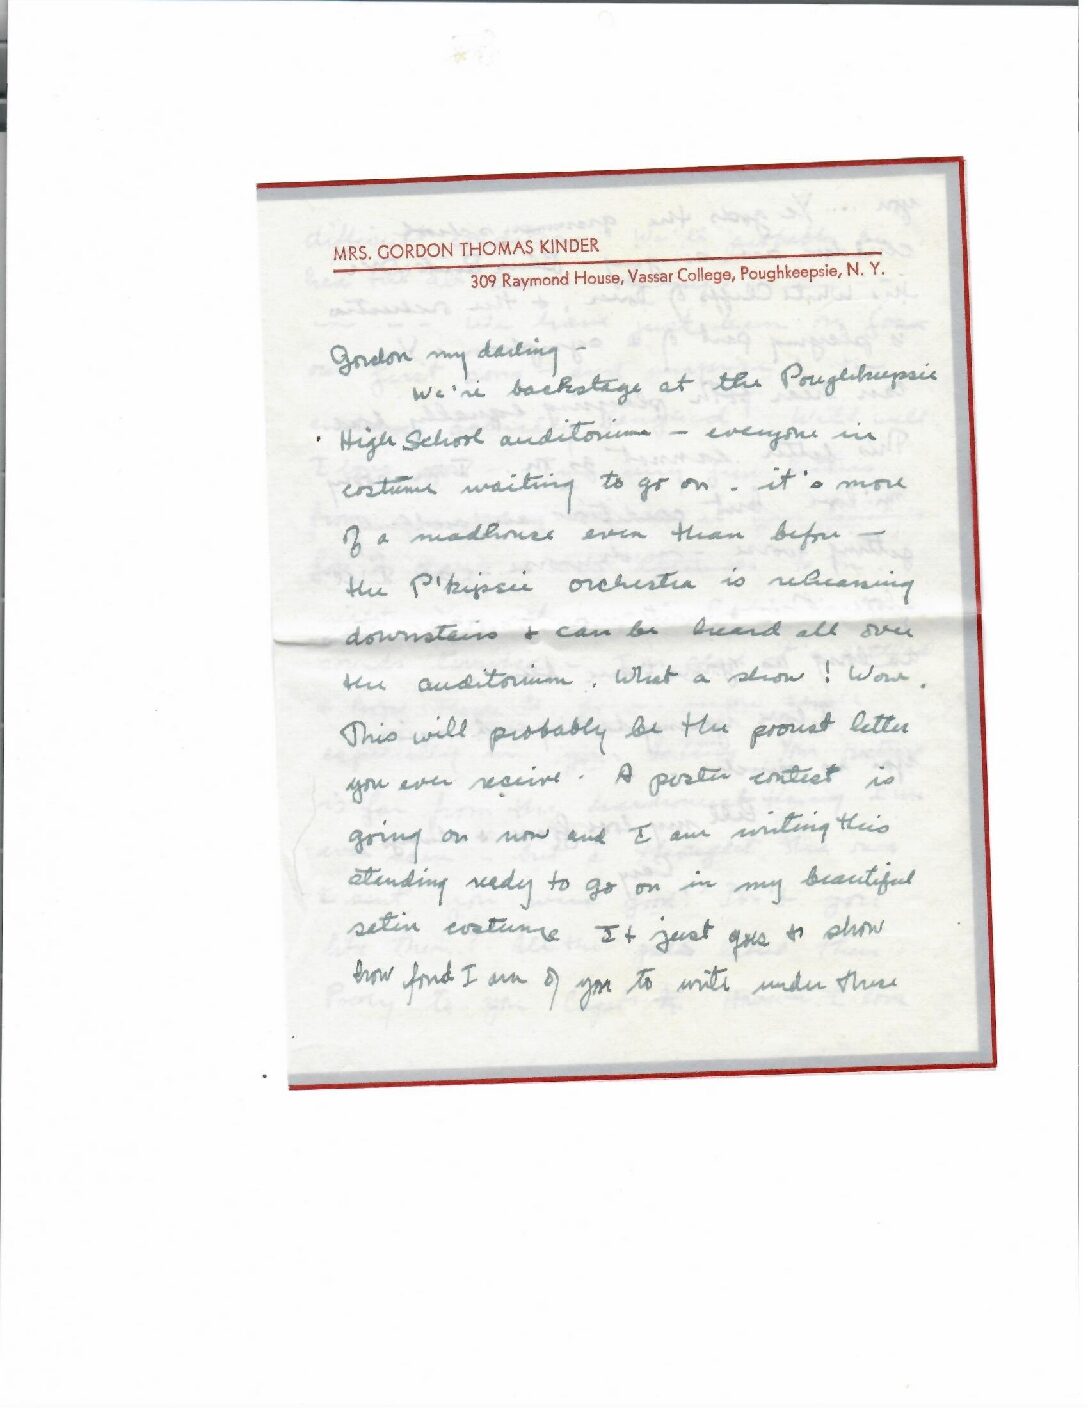 MRS. GORDON THOMAS KINDER
309 Raymond House, Vassar College, Poughkeepsie, N. Y.
Gordon my darling -
We're backstage at the Poughkeepsie
High School auditorium - everyone in
costume waiting to go on. it's more
of a madhouse even than before -
the P'kipsie orchestra is rehearsing
downstairs & can be heard all over
the auditorium. What a show! Wow.
This will probably be the proust letter
you ever receive. A poster contest is
going on now and I am writing this
standing ready to go on in my beautiful
satin costume It just goes to show
how fond I am of you to write under these